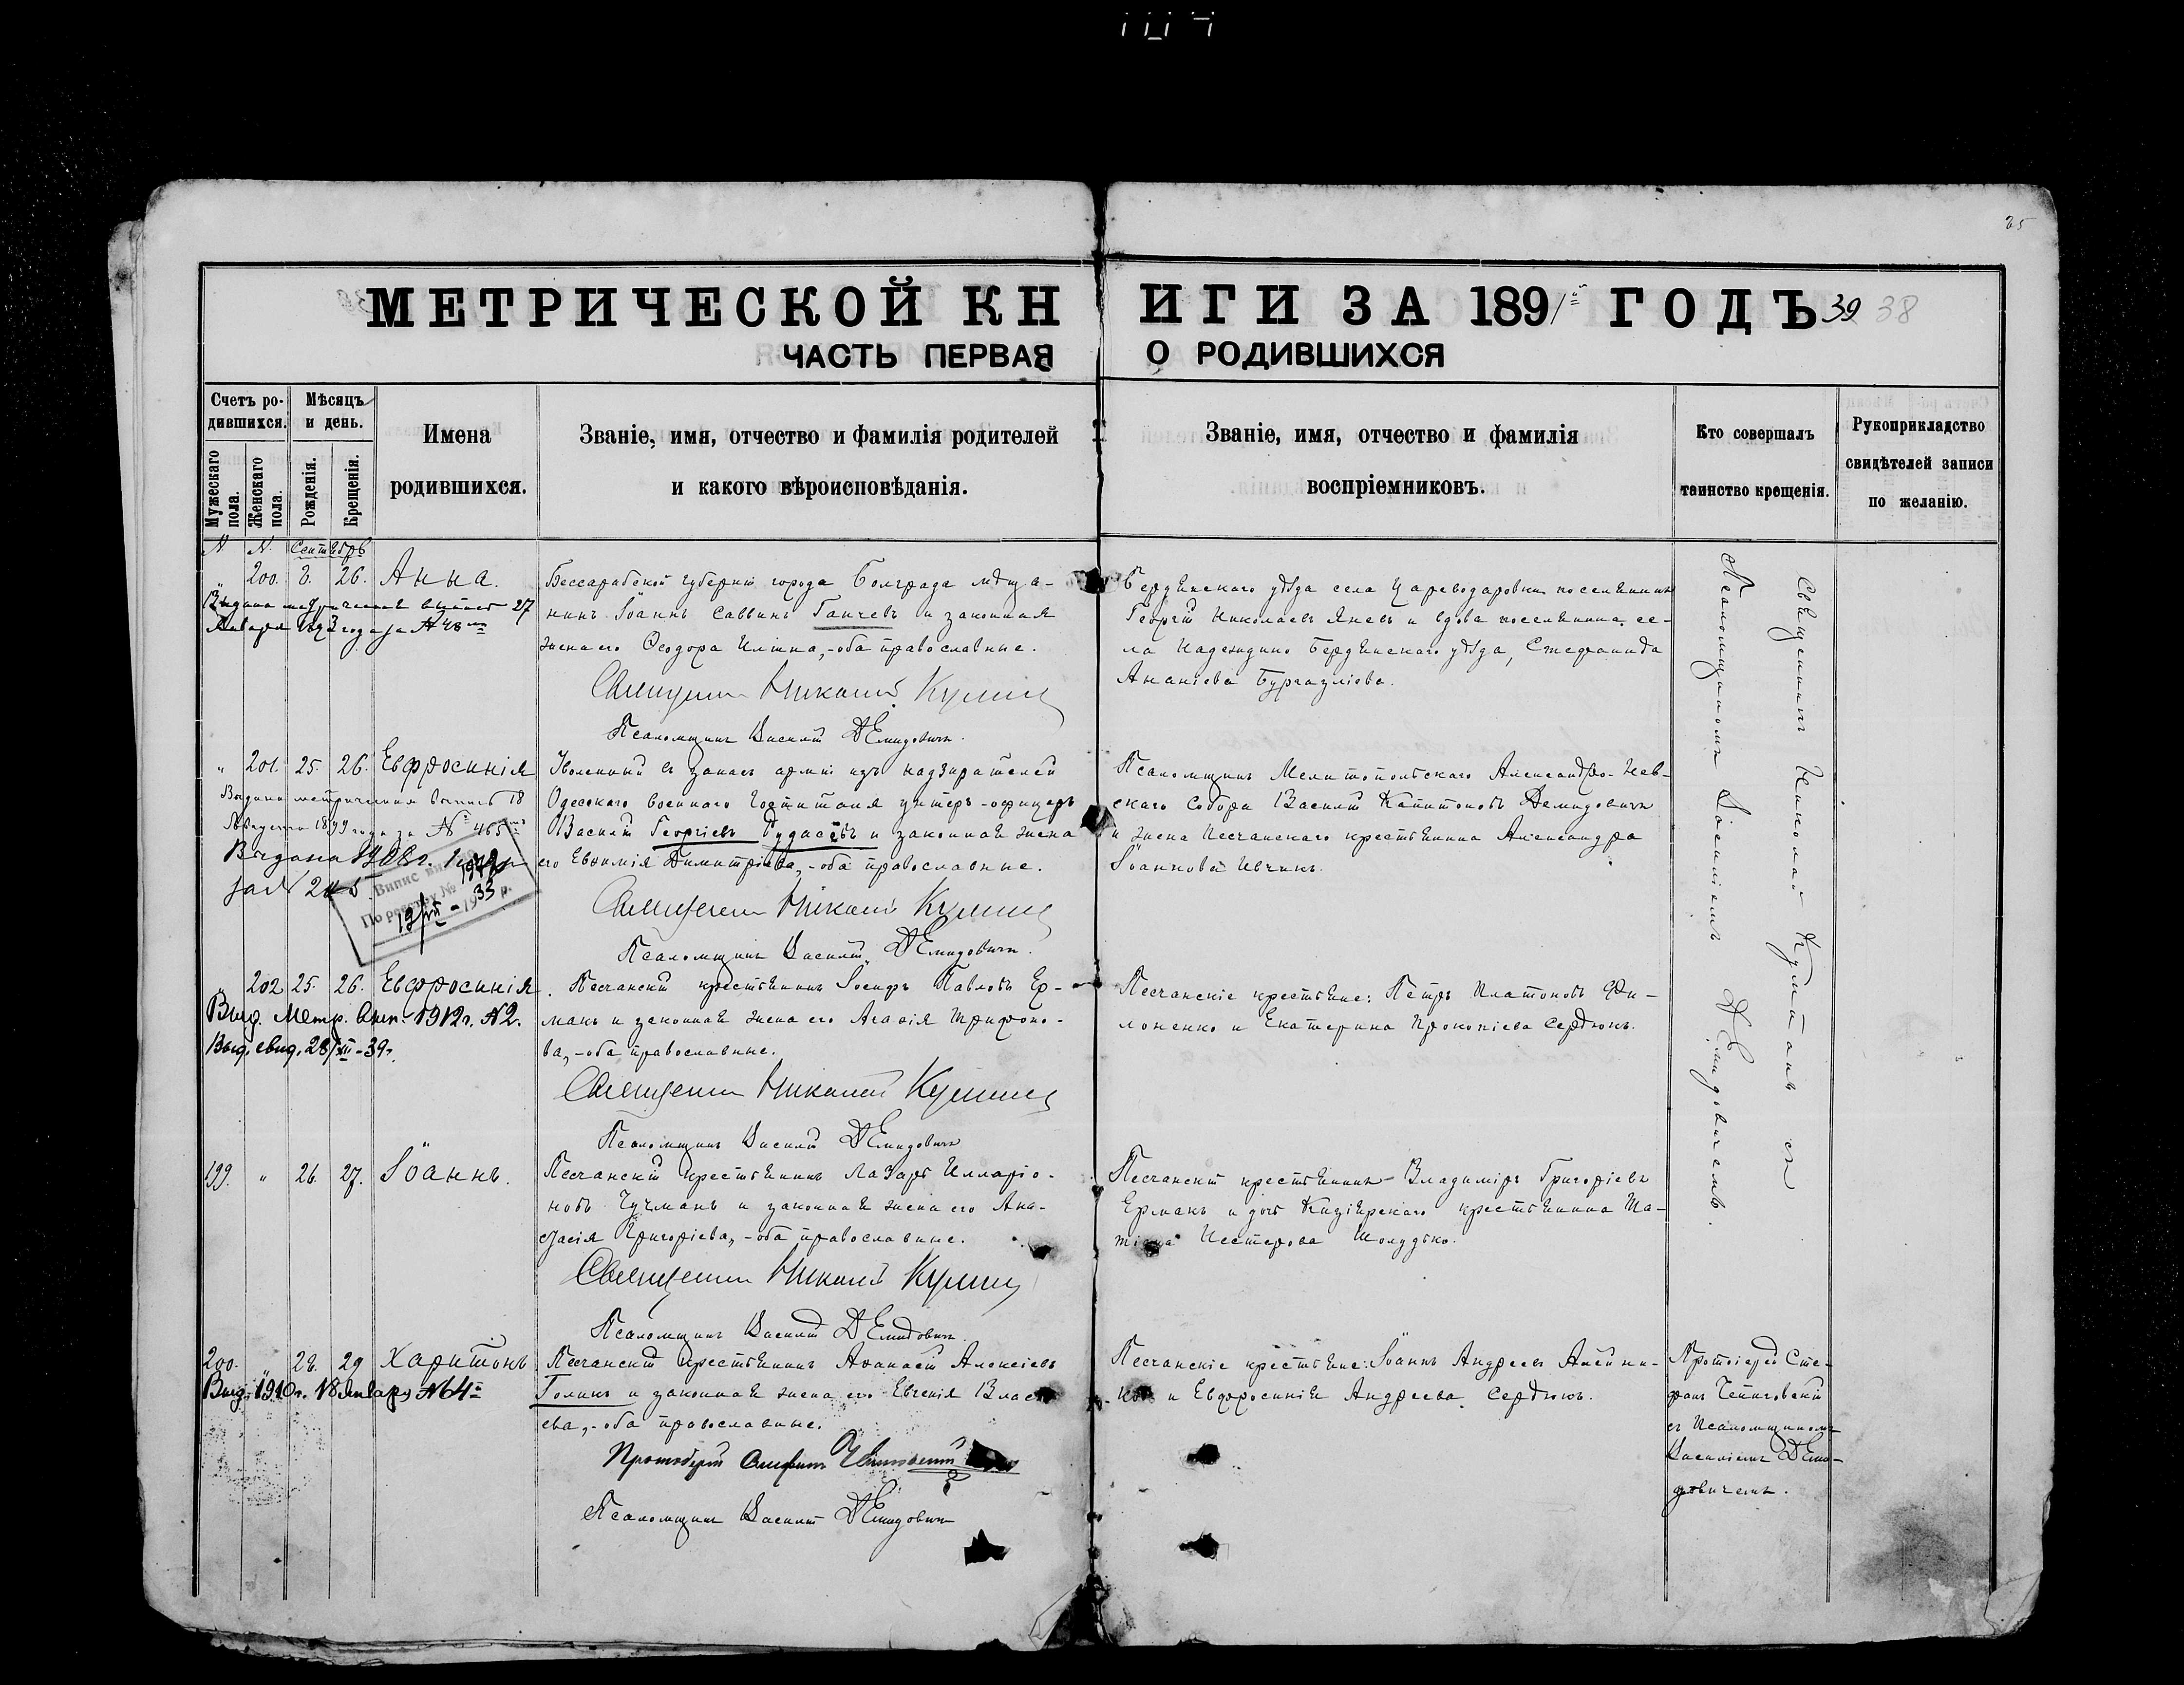 25
МЕТРИЧЕСКОЙ КН
ИГИ ЗА 1891й ГОДЪ 39 38
ЧАСТЬ ПЕРВАЯ
О РОДИВШИХСЯ
Счетъ ро-
дившихся.
Мужескаго
пола.
Женскаго
пола.
Мѣсяцъ
и день.
Рожденія.
Крещенія.
Имена
родившихся.
Званіе, имя, отчество и фамилія родителей
и какого вѣроисповѣданія.
Званіе, имя, отчество и фамилія
воспріемниковъ.
Кто совершалъ
таинство крещенія.
Рукоприкладство
свидѣтелей записи
по желанію.
N N. Сентябрь
" 200. 8. 26. Анна.
Выдана метрическая выпись 27
Января 1893 года за № 48
Бессарабской губерніи города Болграда мѣща-
нинъ Іоаннъ Саввинъ Ганчевъ и законная
жена его Ѳеодора Ильина,-оба православные.
Священникъ Николай
Псаломщикъ Василій Демидовичъ.
Бердянскаго уѣзда села Цареводаровки поселянинъ
Георгій Николаевъ Яневъ и вдова поселянина се-
ла Надеждино Бердянскаго уѣзда, Стефанида
Ананіева Бургазліева.
" 201. 25. 26. Евфросинія
Выдана метрическая выпись 18
1899 года за № 465
Выдана 1908 г.
за № 245
Випис видано
По реєстру №
19/VII - 1933 р.
Уволенный въ запасъ арміи изъ надзирателей
Одесскаго военнаго Госпиталя унтеръ-офицеръ
Василій Георгіевъ и законная жена
его Евѳимія Димитріева,-оба православные.
Священникъ Николай
Псаломщикъ Василій Демидовичъ.
Псаломщикъ Мелитопольскаго Александро-Нев-
скаго Собора Василій Капитоновъ Демидовичъ
и жена Песчанскаго крестьянина Александра
Іоаннова Ивчинъ.
" 202 25. 26. Евфросинія.
Выд. Метр. 1912 г. N2.
Выд. свид. 28/XII-39 г.
Песчанскій крестьянинъ Іосифъ Павловъ Ер-
макъ и законная жена его Агаѳія Трифоно-
ва,-оба православные.
Священникъ Николай
Псаломщикъ Василій Демидовичъ
Песчанскіе крестьяне: Петръ Платоновъ Фи-
лоненко и Екатерина Прокопіева Сердюкъ.
199. " 26. 27. Іоаннъ.
Песчанскій крестьянинъ Лазарь Илларіо-
новъ Чучманъ и законная жена его Ана-
стасія Григоріева,-оба православные.
Священникъ Николай
Псаломщикъ Василій Демидовичъ.
Песчанскій крестьянинъ Владиміръ Григоріевъ
Ермакъ и дочь крестьянина Та-
тіана Нестерова
200. " 28. 29 Харитонъ
Выд. 1910 г. 18 Января №64
Песчанскій крестьянинъ Аѳанасій Алексіевъ
Голикъ и законная жена его Евгенія Власі-
ева,-оба православные.
Протоіерей Стефанъ
Псаломщикъ Василій Демидовичъ
Песчанскіе крестьяне: Іоаннъ Андреевъ Алейни-
ковъ и Евфросинія Андреева Сердюкъ.
Священникъ Николай съ
Псаломщикомъ Василіемъ Демидовичемъ.
Протоіерей Сте-
фанъ
съ Псаломщикомъ
Василіемъ Деми-
довичемъ.